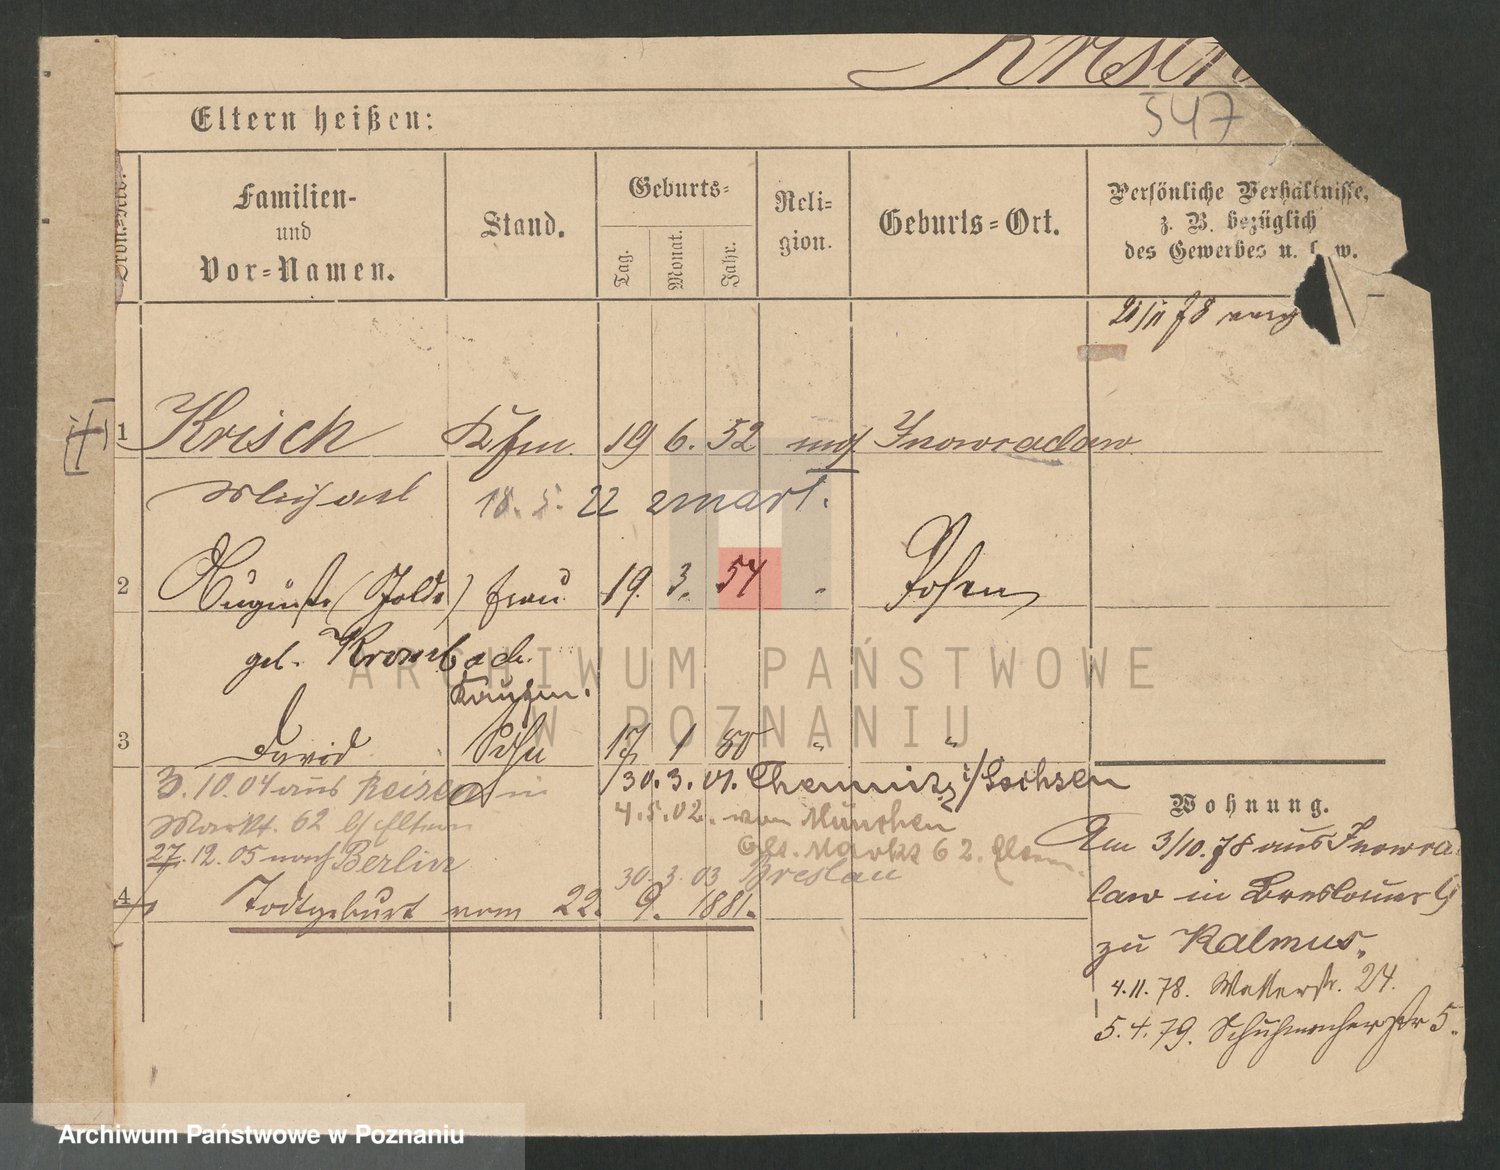 Krisch
547
Eltern heißen:
Ordn.-Nro.
Familien-
und
Vor-Namen.
Stand.
Geburts-
Tag.
Monat.
Jahr.
Reli-
gion.
Geburts-Ort.
Persönliche Verhältnisse,
z. B. bezüglich
des Gewerbes u. s. w.
78
1 Krisch Kfm. 19 6. 52 Inowradaw
18. 5. 22 zmarł.
2 Auguste ( ) Frau 19. 3. 54 " Posen
geb.
3 David Sohn 17 1 80 " "
3. 10. 04 aus Reisen in
30. 3. 01. Chemnitz i/Sachsen
Markt. 62 b/Eltern
4. 5. 02. von München
Markt 62. Eltern
27. 12. 05 nach Berlin
30. 3. 03 Breslau
4 Todtgeburt vom 22. 9. 1881.
Wohnung.
Am 3/10. 78 aus Inowra-
law in Breslauer
zu Kalmus.
4. 11. 78. 24.
5. 4. 79. Schuhmacherstr 5.
ARCHIWUM PAŃSTWOWE
W POZNANIU
Archiwum Państwowe w Poznaniu